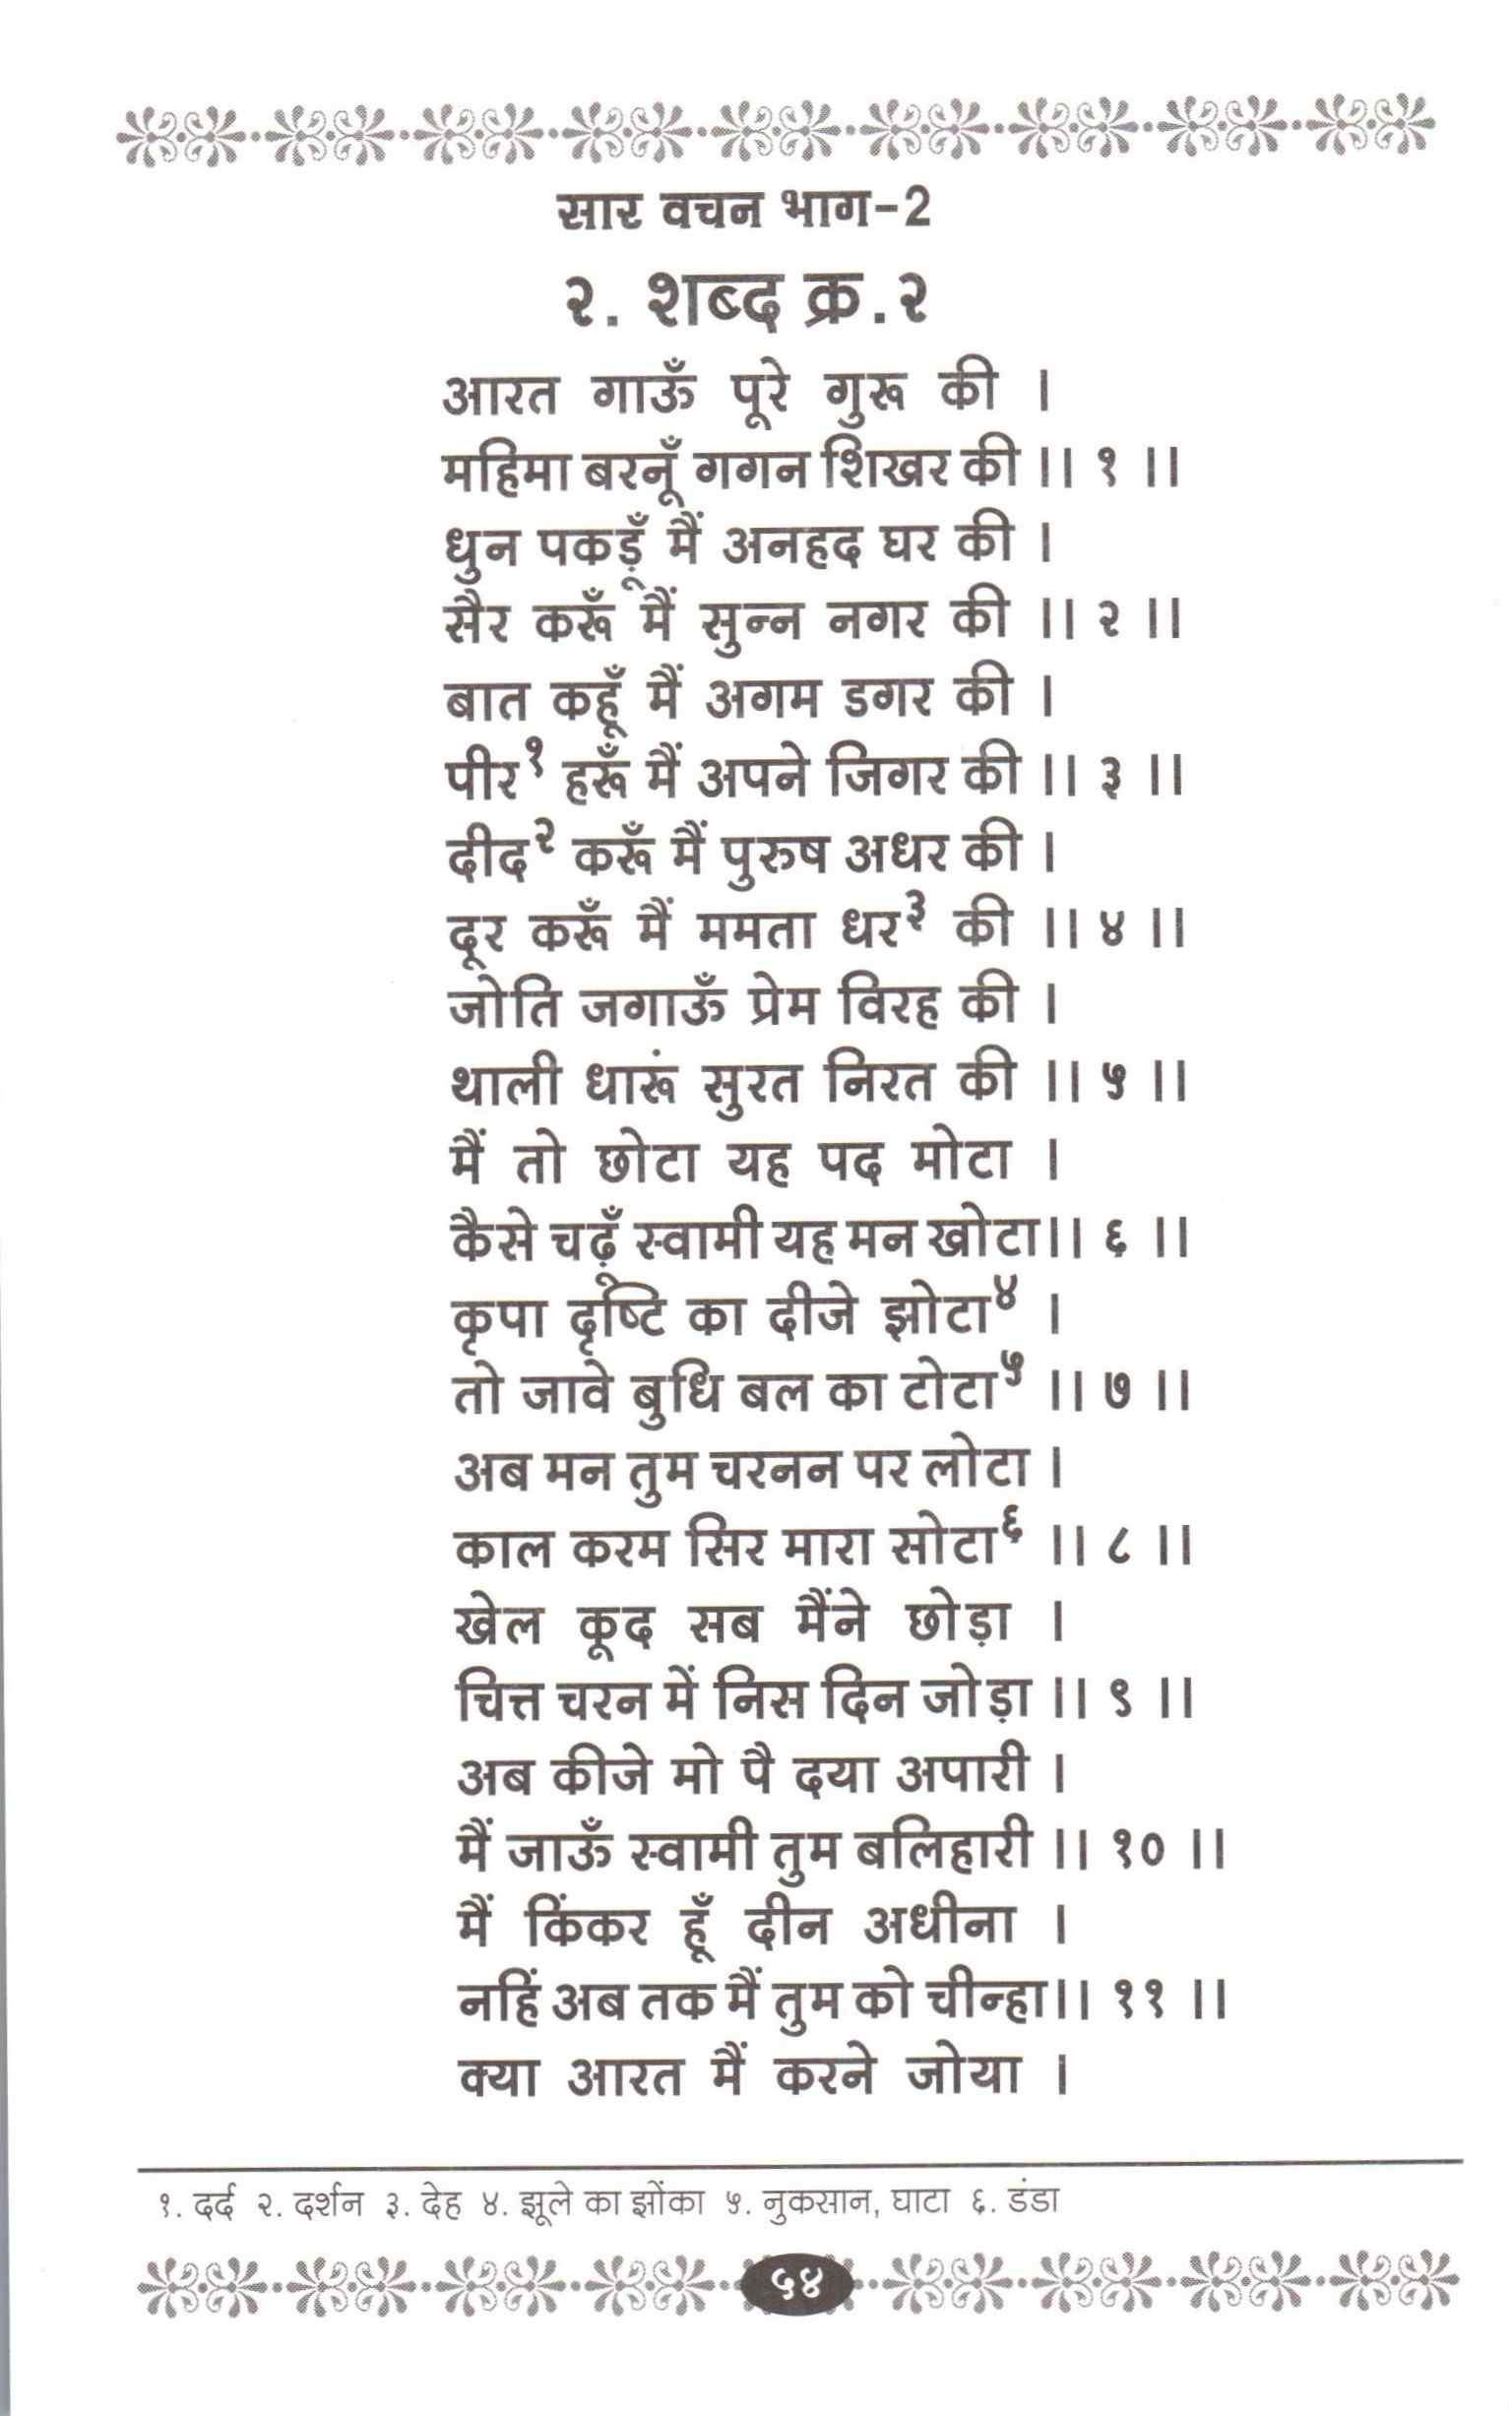 सार वचन भाग-2
२. शब्द क्र.२
आरत गाऊँ पूरे गुरू की ।
महिमा बरनूँ गगन शिखर की ।। १ ।।
धुन पकड़ूँ मैं अनहद घर की ।
सैर करूँ मैं सुन्न नगर की ।। २ ।।
बात कहूँ मैं अगम डगर की ।
पीर१ हरूँ मैं अपने जिगर की ।। ३ ।।
दीद२ करूँ मैं पुरुष अधर की ।
दूर करूँ मैं ममता धर३ की ।। ४ ।।
जोति जगाऊँ प्रेम विरह की ।
थाली धारूं सुरत निरत की ।। ५ ।।
मैं तो छोटा यह पद मोटा ।
कैसे चढ़ूँ स्वामी यह मन खोटा।। ६ ।।
कृपा दृष्टि का दीजे झोटा४ ।
तो जावे बुधि बल का टोटा५ ।। ७ ।।
अब मन तुम चरनन पर लोटा ।
काल करम सिर मारा सोटा६ ।। ८ ।।
खेल कूद सब मैंने छोड़ा ।
चित्त चरन में निस दिन जोड़ा ।। ९ ।।
अब कीजे मो पै दया अपारी ।
मैं जाऊँ स्वामी तुम बलिहारी ।। १० ।।
मैं किंकर हूँ दीन अधीना ।
नहिं अब तक मैं तुम को चीन्हा।। ११ ।।
क्या आरत मैं करने जोया ।
१. दर्द २. दर्शन ३. देह ४. झूले का झोंका ५. नुकसान, घाटा ६. डंडा
५४